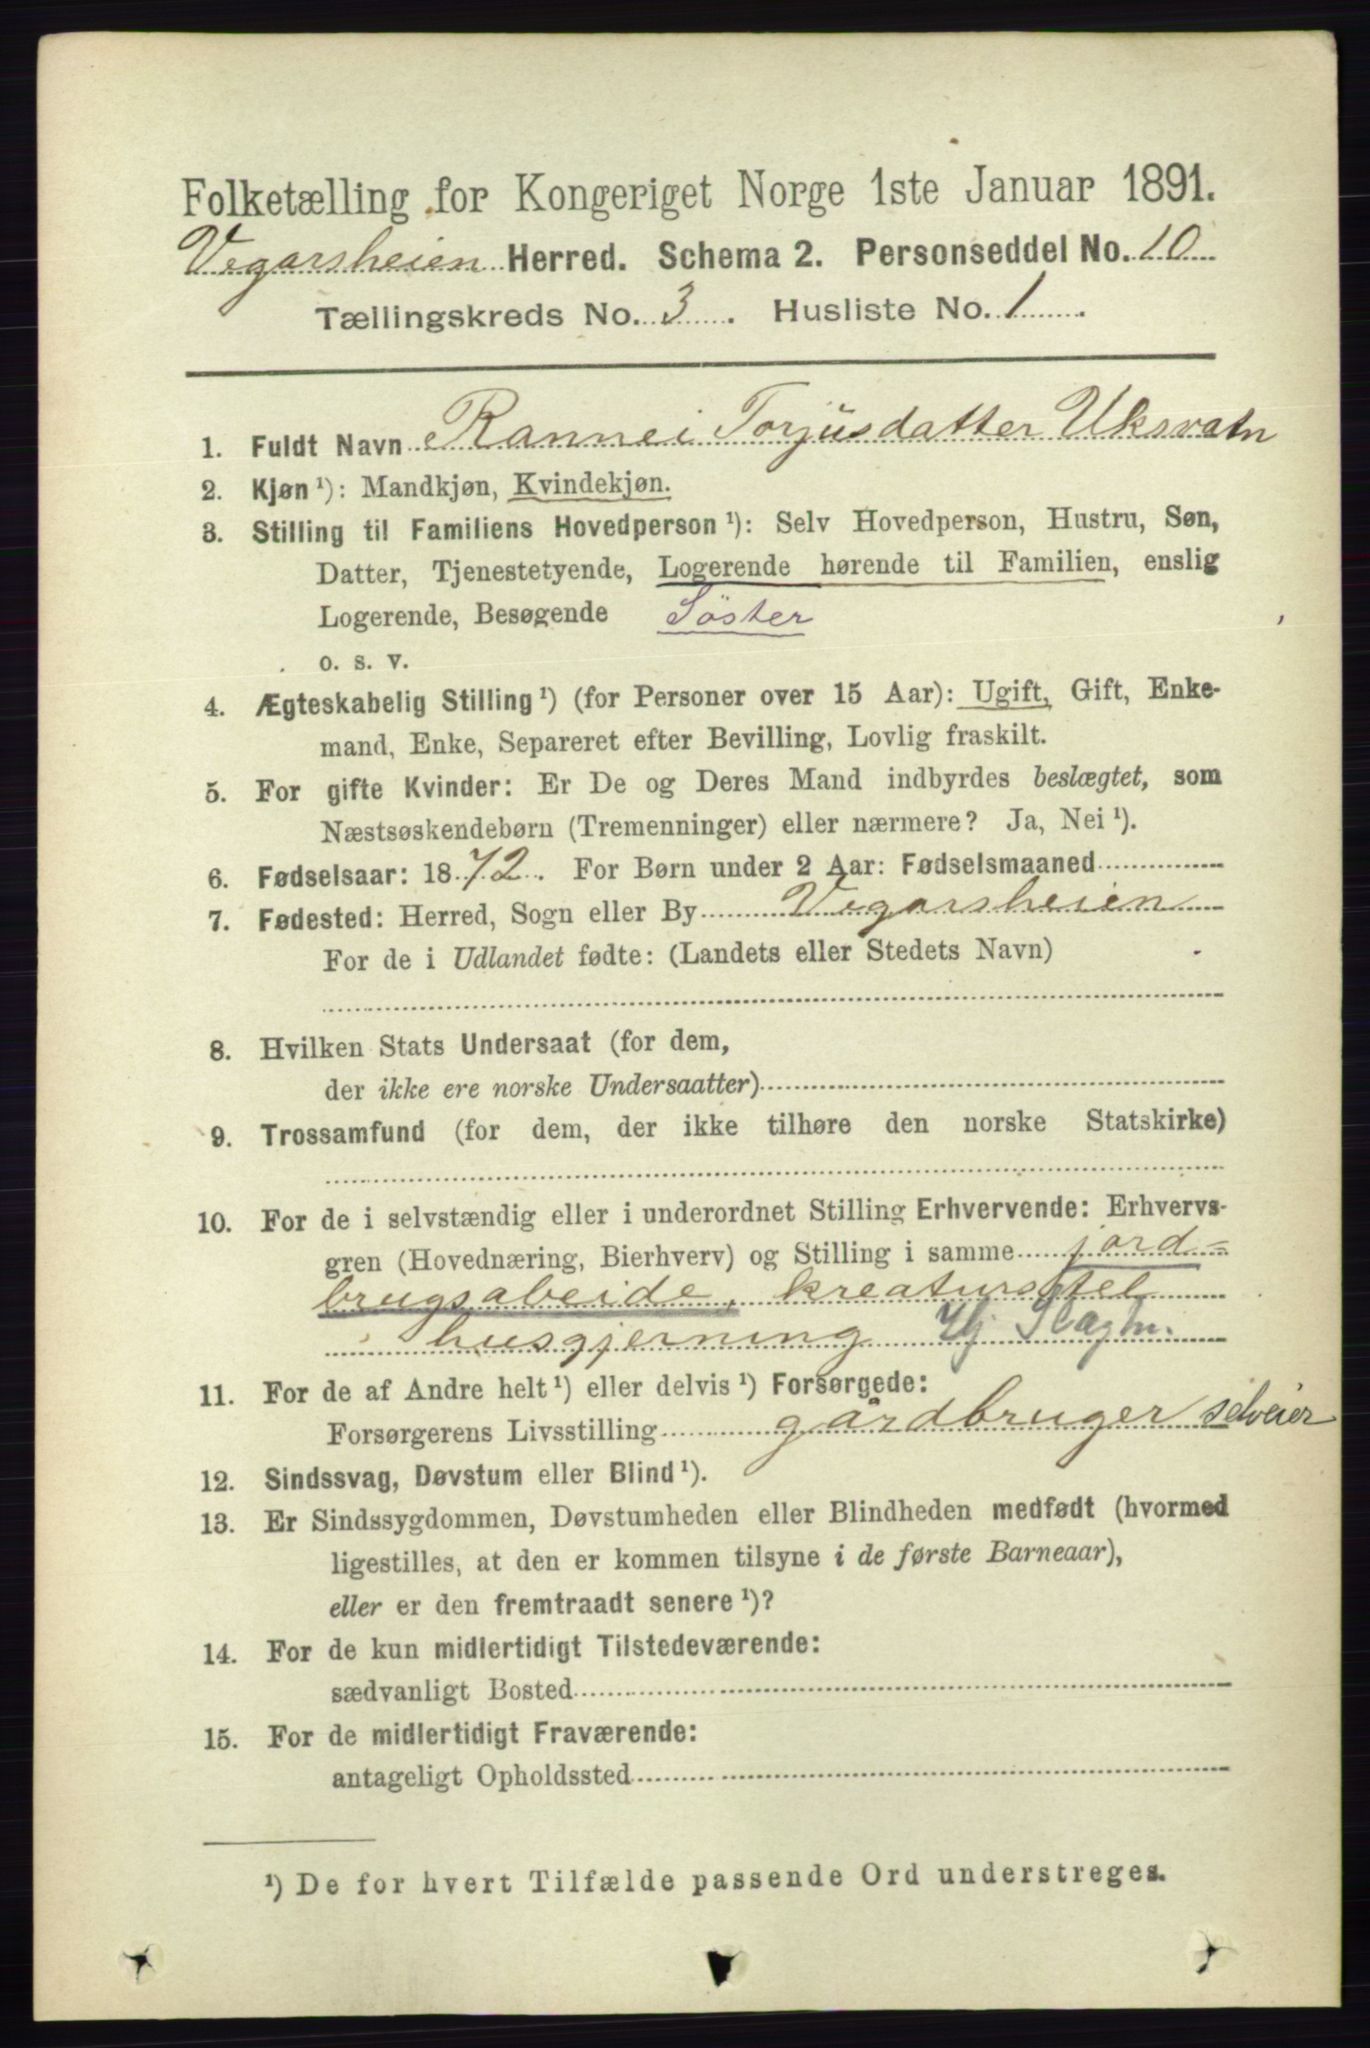 Folketælling for Kongeriget Norge 1ste Januar 1891.
Vegarsheien Herred. Schema 2. Personseddel No. 10
Tællingskreds No. 3. Husliste No. 1.
1. Fuldt Navn Rannei Torjusdatter Uksvatn
2. Kjøn ¹): Mandkjøn, Kvindekjøn.
3. Stilling til Familiens Hovedperson ¹): Selv Hovedperson, Hustru, Søn,
Datter, Tjenestetyende, Logerende hørende til Familien, enslig
Logerende, Besøgende Söster
o. s. v.
4. Ægteskabelig Stilling ¹) (for Personer over 15 Aar): Ugift, Gift, Enke-
mand, Enke, Separeret efter Bevilling, Lovlig fraskilt.
5. For gifte Kvinder: Er De og Deres Mand indbyrdes beslægtet, som
Næstsøskendebørn (Tremenninger) eller nærmere? Ja, Nei ¹).
6. Fødselsaar: 1872. For Børn under 2 Aar: Fødselsmaaned
7. Fødested: Herred, Sogn eller By Vegarsheien
For de i Udlandet fødte: (Landets eller Stedets Navn)
8. Hvilken Stats Undersaat (for dem,
der ikke ere norske Undersaatter)
9. Trossamfund (for dem, der ikke tilhøre den norske Statskirke)
10. For de i selvstændig eller i underordnet Stilling Erhvervende: Erhvervs-
gren (Hovednæring, Bierhverv) og Stilling i samme jord-
brugsabeide, kreaturstel
husgjerning
11. For de af Andre helt ¹) eller delvis ¹) Forsørgede:
Forsørgerens Livsstilling gårdbruger selveier
12. Sindssvag, Døvstum eller Blind ¹).
13. Er Sindssygdommen, Døvstumheden eller Blindheden medfødt (hvormed
ligestilles, at den er kommen tilsyne i de første Barneaar),
eller er den fremtraadt senere ¹)?
14. For de kun midlertidigt Tilstedeværende:
sædvanligt Bosted
15. For de midlertidigt Fraværende:
antageligt Opholdssted
¹) De for hvert Tilfælde passende Ord understreges.